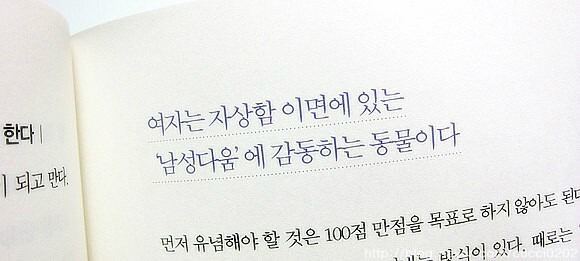 한다
되고 만다.
여자는 자상함 이면에 있는
'남성다움'에 감동하는 동물이다
먼저 유념해야 할 것은 100점 만점을 목표로 하지 않아도 된다
방식이 있다. 때로는